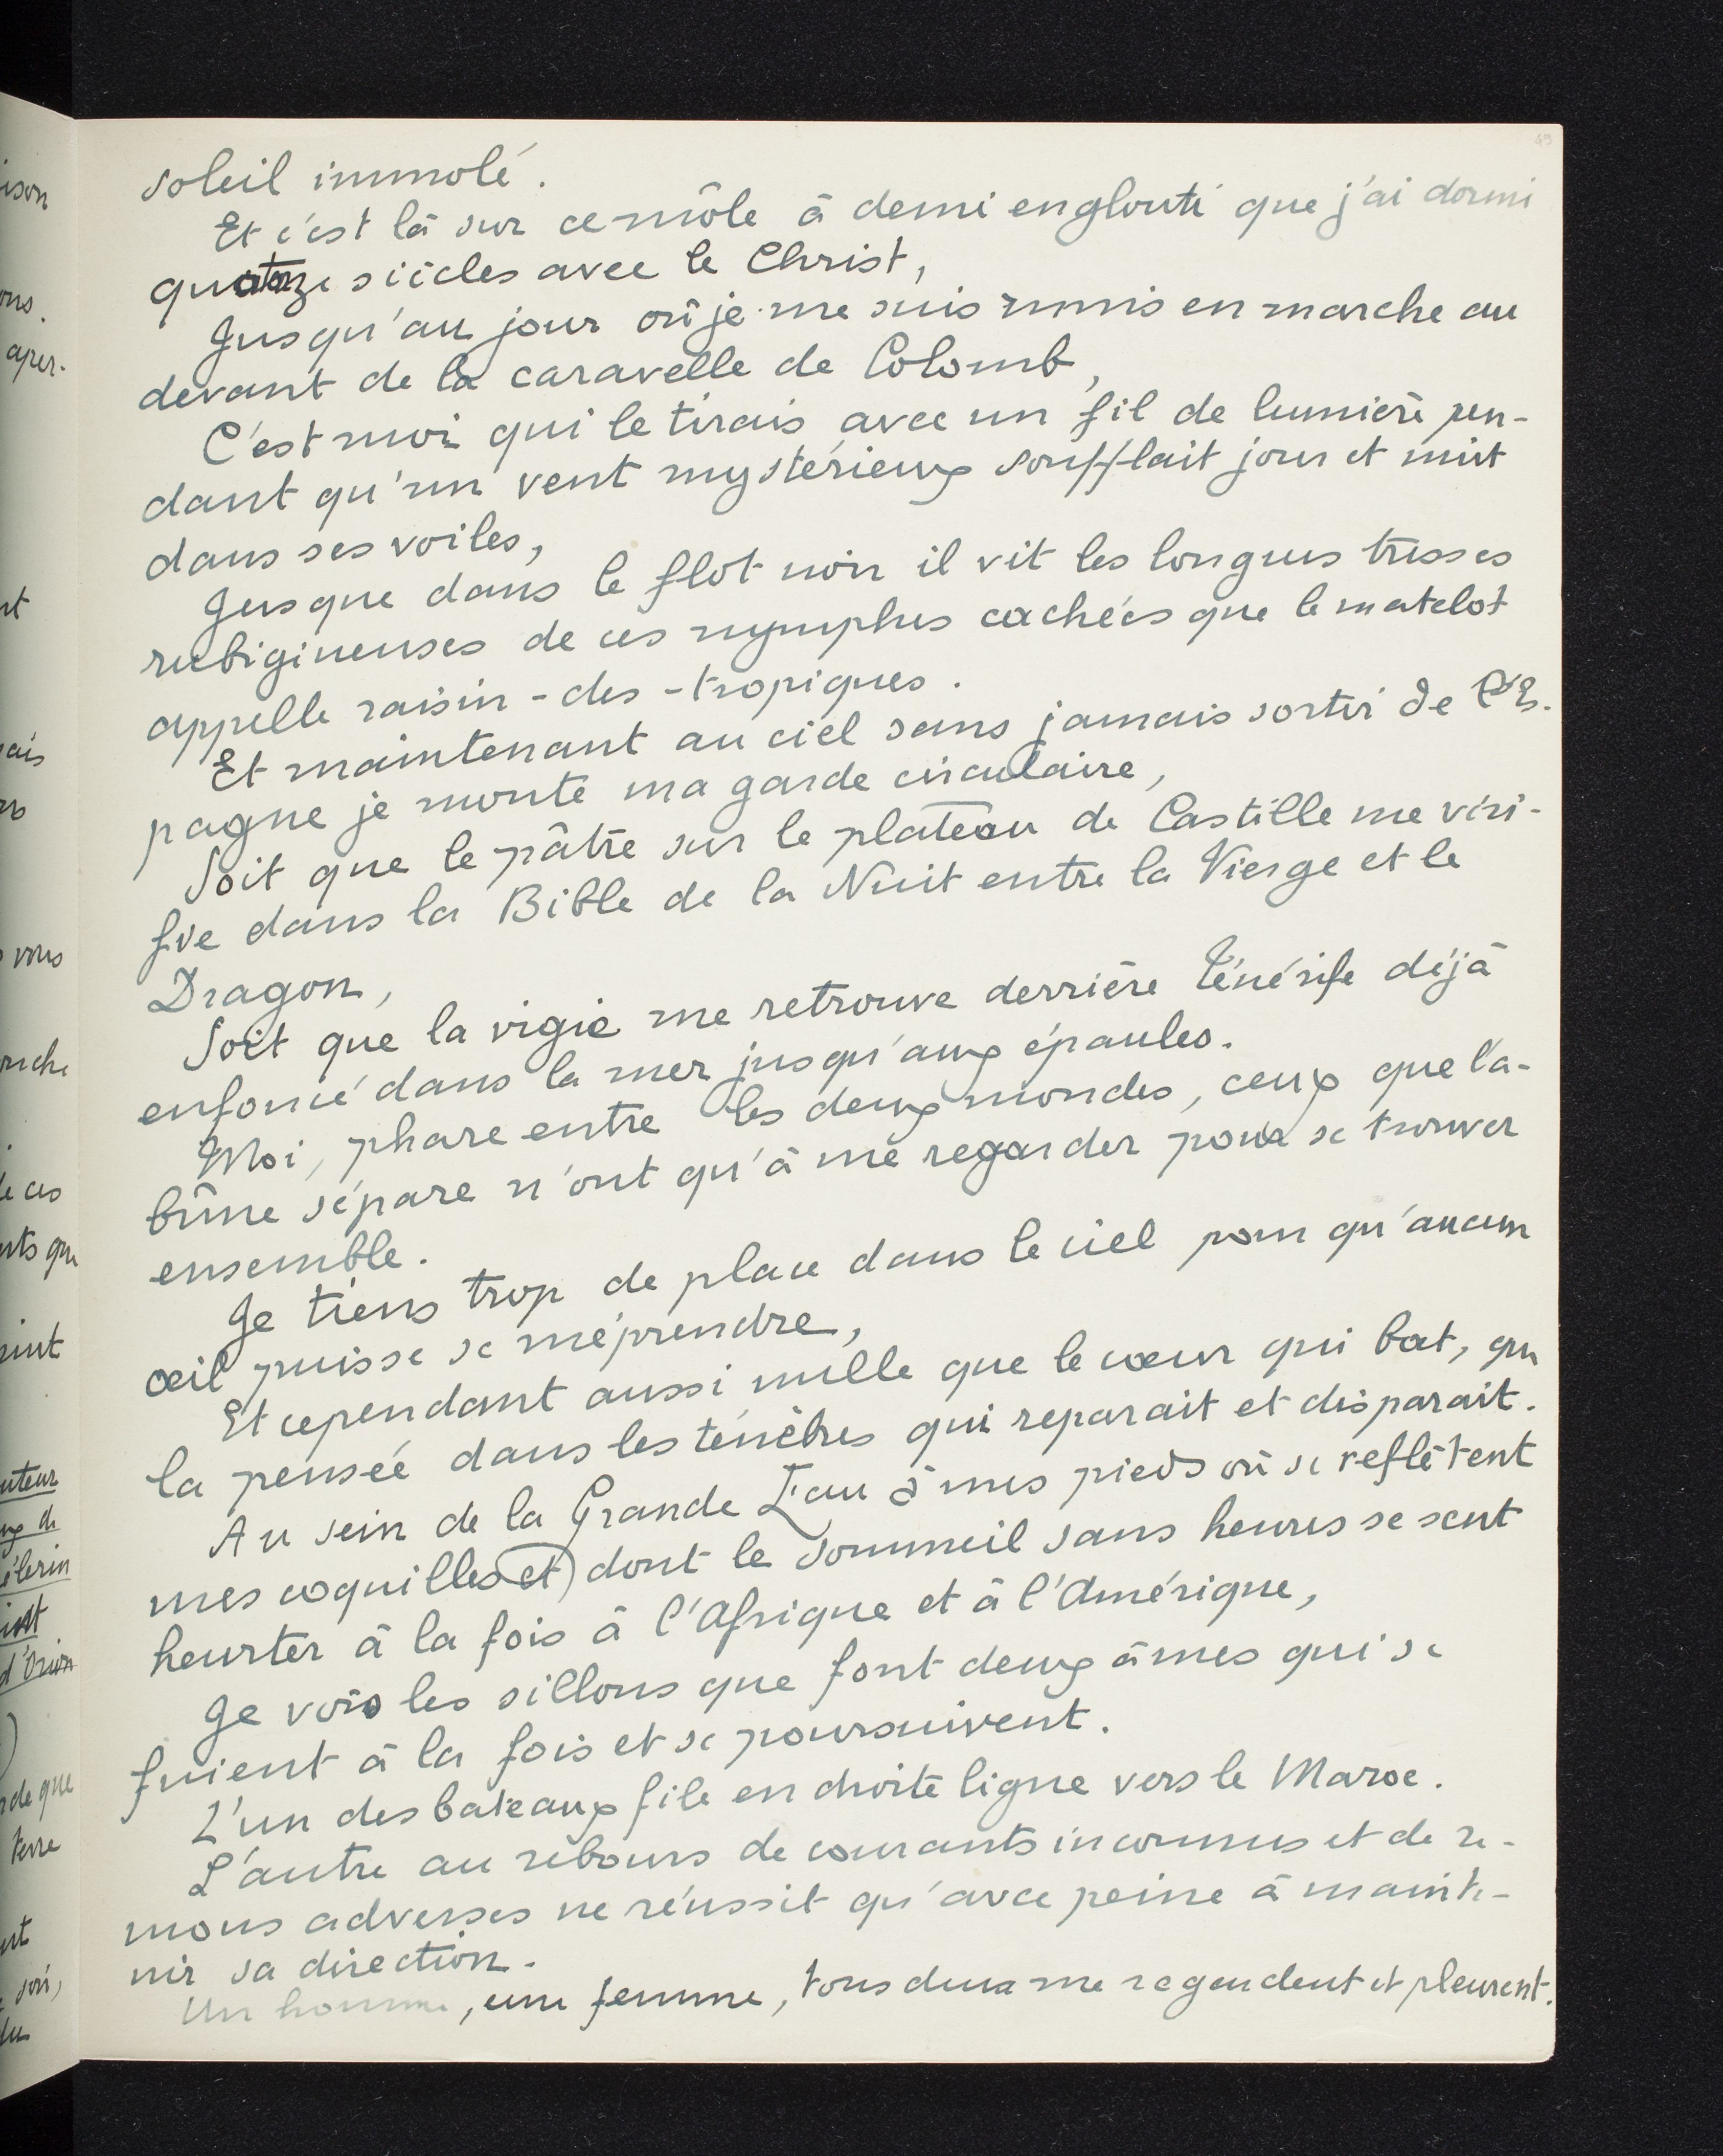 soleil immolé.
Et c'est là sur ce môle à demi englouti que j'ai dormi
quatorze siècles avec le Christ,
Jusqu'au jour où je me suis remis en marche au
devant de la caravelle de Colomb,
C'est moi qui le tirais avec un fil de lumière pen-
dant qu'un vent mystérieux soufflait jour et nuit
dans ses voiles,
Jusque dans le flot noir il vit les longues tresses
rubigineuses de ces nymphes cachées que le matelot
appelle raisin-des-tropiques.
Et maintenant au ciel sans jamais sortir de l'Es-
pagne je monte ma garde circulaire,
Soit que le pâtre sur le plateau de Castille me véri-
fie dans la Bible de la Nuit entre la Vierge et le
Dragon,
Soit que la vigie me retrouve derrière Ténérife déjà
enfoncé dans la mer jusqu'aux épaules.
Moi, phare entre les deux mondes, ceux que l'a-
bîme sépare n'ont qu'à me regarder pour se trouver
ensemble.
Je tiens trop de place dans le ciel pour qu'aucun
œil puisse se méprendre,
Et cependant aussi nulle que le cœur qui bat, que
la pensée dans les ténèbres qui reparait et disparait.
Au sein de la Grande Eau à mes pieds où se reflètent
mes coquilles et dont le sommeil sans heures se sent
heurter à la fois à l'Afrique et à l'Amérique,
Je vois les sillons que font deux âmes qui se
fuient à la fois et se poursuivent.
L'un des bateaux file en droite ligne vers le Maroc.
L'autre au rebours de courants inconnus et de re-
mous adverses ne réussit qu'avec peine à mainte-
nir sa direction.
Un homme, une femme, tous deux me regardent et pleurent.